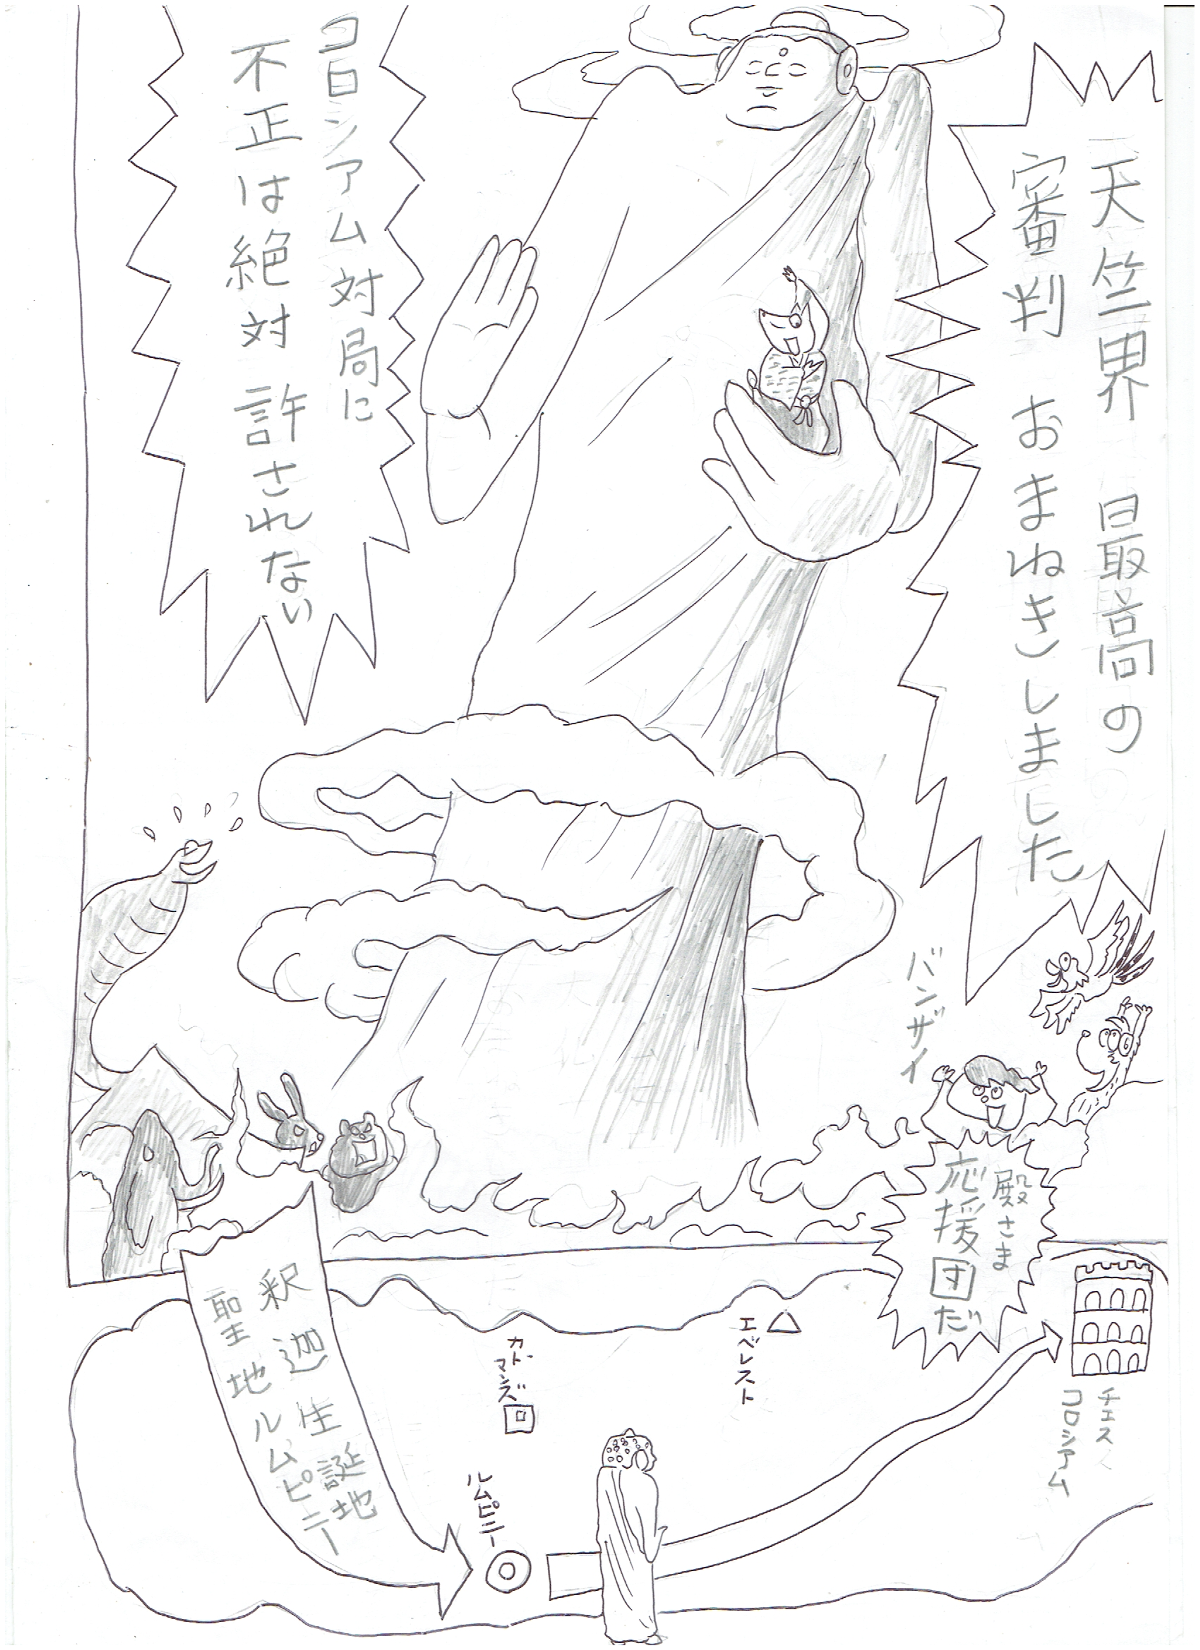 天竺界 最高の
審判 おまねきしました
コロシアム対局に
不正は絶対 許されない
バンザイ
殿さま
応援団だ
釈迦生誕地
聖地ルムピニー
カトマンズ
エベレスト
ルムピニー
チェス
コロシアム